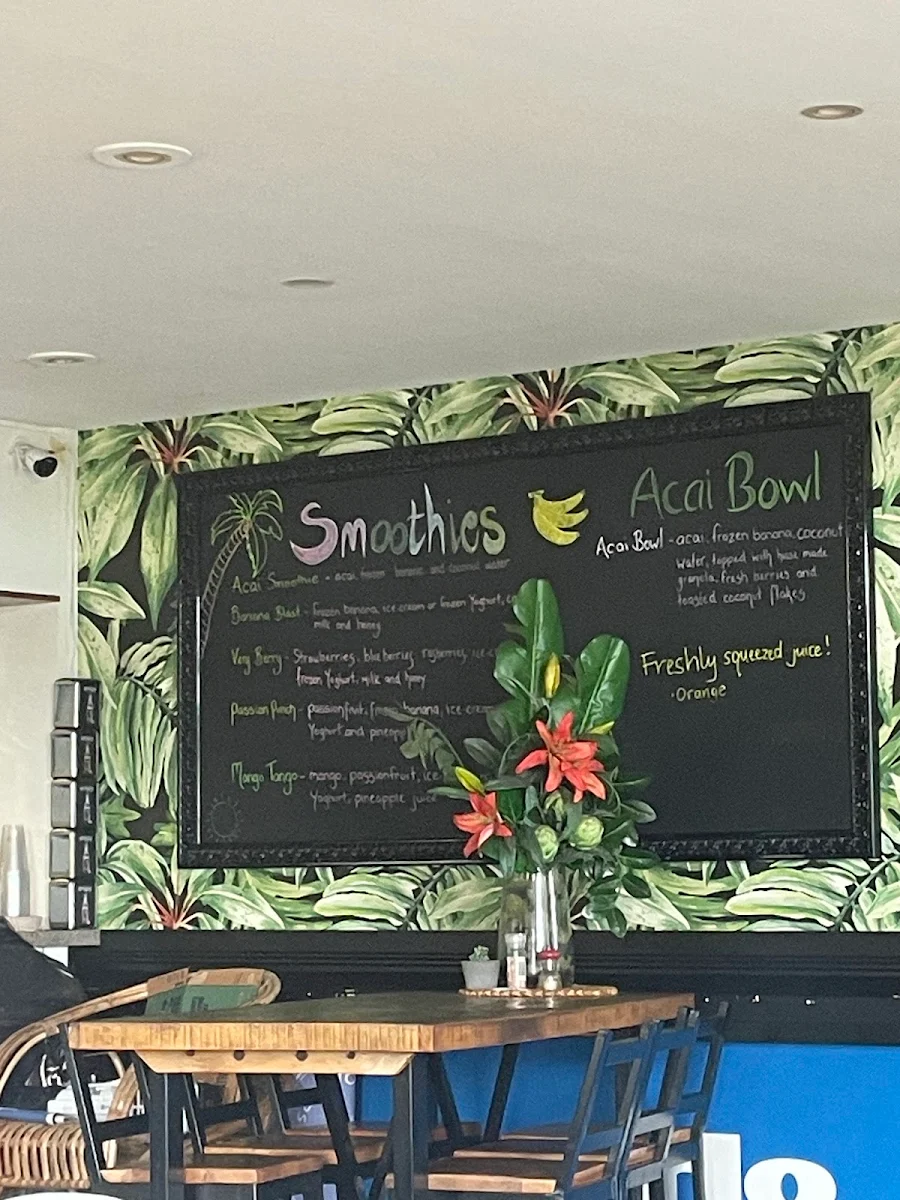 Smoothies
Acai Smoothie - acai, frozen banana and coconut water
Banana Blast - frozen banana, ice cream or frozen Yoghurt,
milk and honey
Very Berry - Strawberries, blueberries, raspberries, ice
frozen Yoghurt, milk and honey
Passion Punch - passionfruit, frozen banana, Ice-cream
Yoghurt and pineapp
Mango Tango - mango, passionfruit, ice
Yoghurt, pineapple juice
Acai Bowl
Acai Bowl - acai, frozen banana, coconut
water, topped with house made
granola, fresh berries and
toasted coconut flakes
Freshly squeezed juice!
· Orange